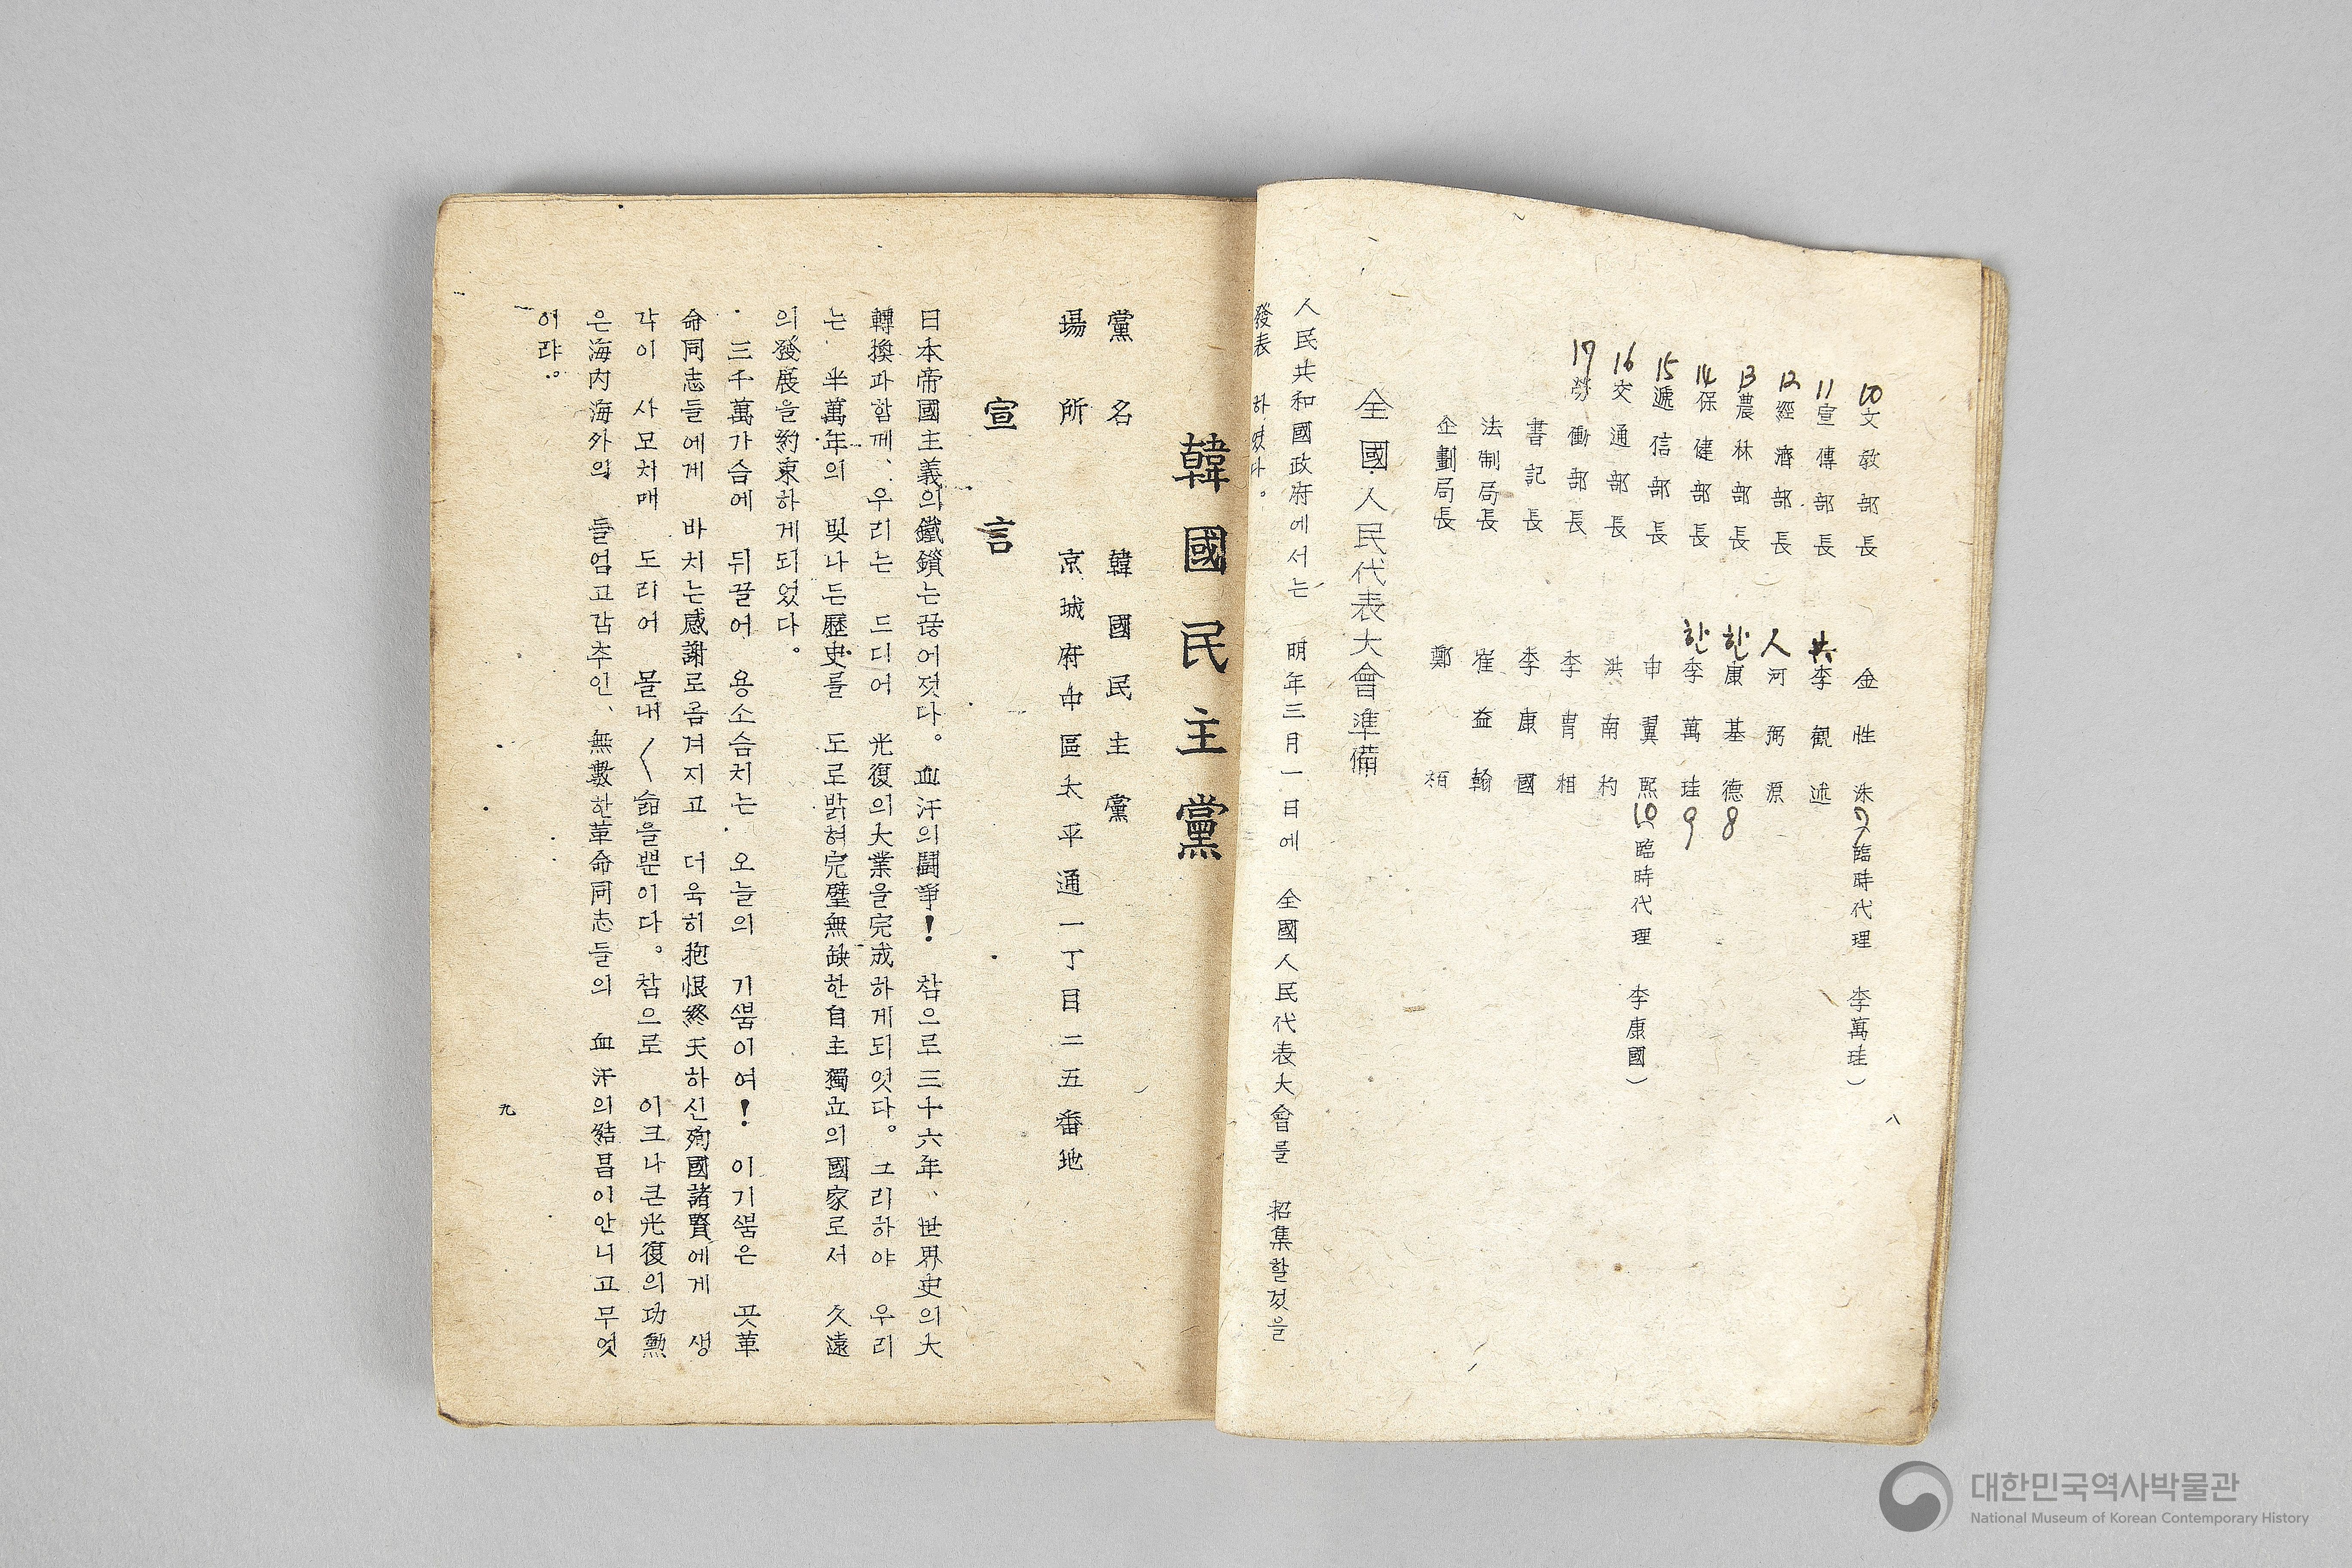 10 文敎部長 金性洙 7 (臨時代理 李萬珪)
11 宣傳部長 共 李觀述
12 經濟部長 人 河弼源
13 農林部長 한 康基德 8
14 保健部長 한 李萬珪 9
15 遞信部長 申翼熙 10 (臨時代理 李康國)
16 交通部長 洪南杓
17 勞働部長 李胄相
書記長 李康國
法制局長 崔益翰
企劃局長 鄭 栢
全國人民代表大會準備
人民共和國政府에서는 明年三月一日에 全國人民代表大會를 招集할것을
發表 하엿다。
八
韓國民主黨
黨名 韓國民主黨
場所 京城府中區太平通一丁目二五番地
宣言
日本帝國主義의鐵鎖는끊어젓다。血汗의鬪爭! 참으로三十六年、世界史의大
轉換과함께、우리는 드디어 光復의大業을完成하게되엇다。그리하야 우리
는 半萬年의 빛나든歷史를 도로밝혀完璧無缺한自主獨立의國家로서 久遠
의發展을約束하게되었다。
三千萬가슴에 뒤끌어 용소슴치는 오늘의 기쁨이여! 이기쁨은 곳革
命同志들에게 바치는感謝로옴겨지고 더욱히抱恨終天하신殉國諸賢에게 생
각이 사모치매 도리어 몰내〱슬을뿐이다。참으로 이크나큰光復의功勲
은海內海外의 들엄고감추인、無數한革命同志들의 血汗의結晶이안니고무엇
이랴。
九
대한민국역사박물관
National Museum of Korean Contemporary History